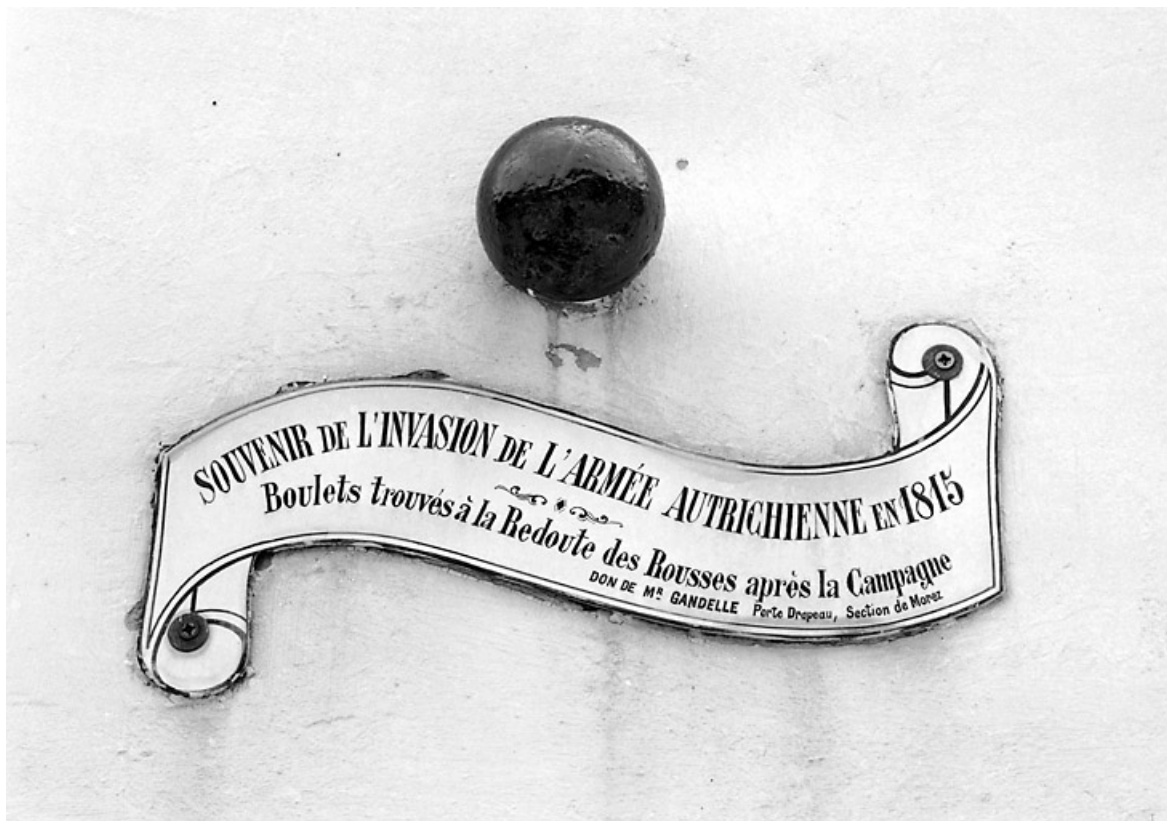 SOUVENIR DE L'INVASION DE L'ARMÉE AUTRICHIENNE EN 1815
Boulets trouvés à la Redoute des Rousses après la Campagne
DON DE MR GANDELLE Porte Drapeau, Section de Morez